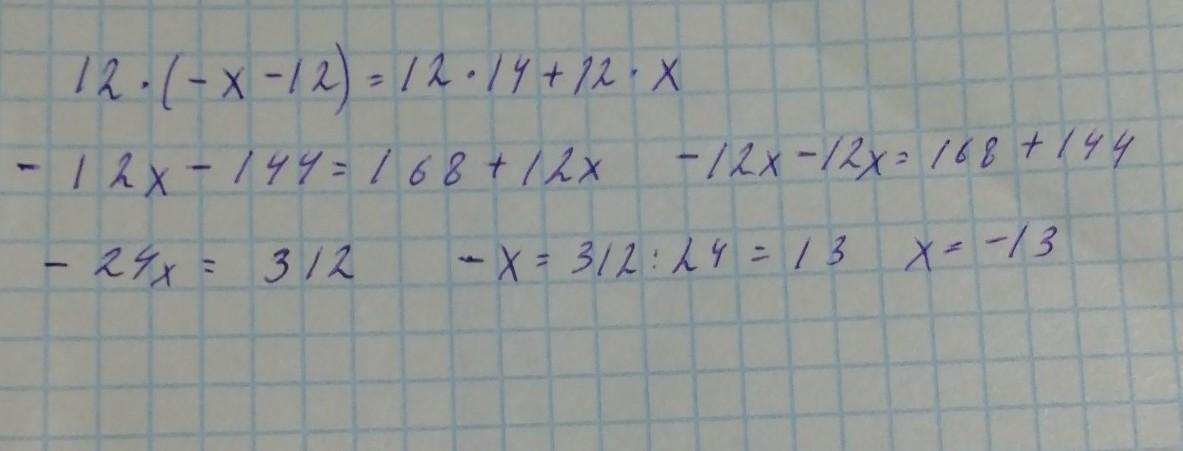 12·(-x-12)=12·14+12·x
-12x-144=168+12x -12x-12x=168+144
-24x= 312 -x=312:24=13 x=-13